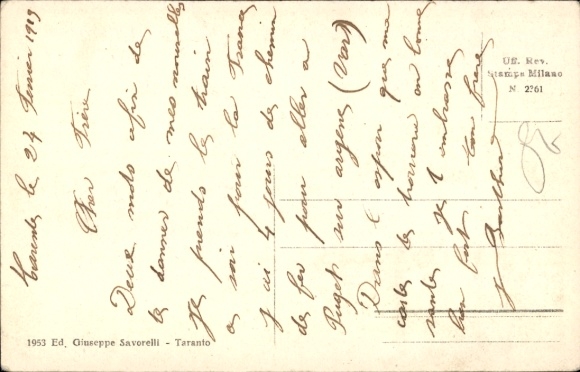 le 24 Fevrier 1919
Cher Frère
Deux mots afin de
te donner de mes nouvelles
Je prends le train
ce soir pour la France
j ai 4 jours de chemin
de fer pour aller a
Puget sur argens (Var)
Dans l espoir que ma
carte te trouvera en bonne
santée je t embrasse
bien fort ton frère
Uff. Rev.
Stampa Milano
N. 2361
1953 Ed. Giuseppe Savorelli - Taranto